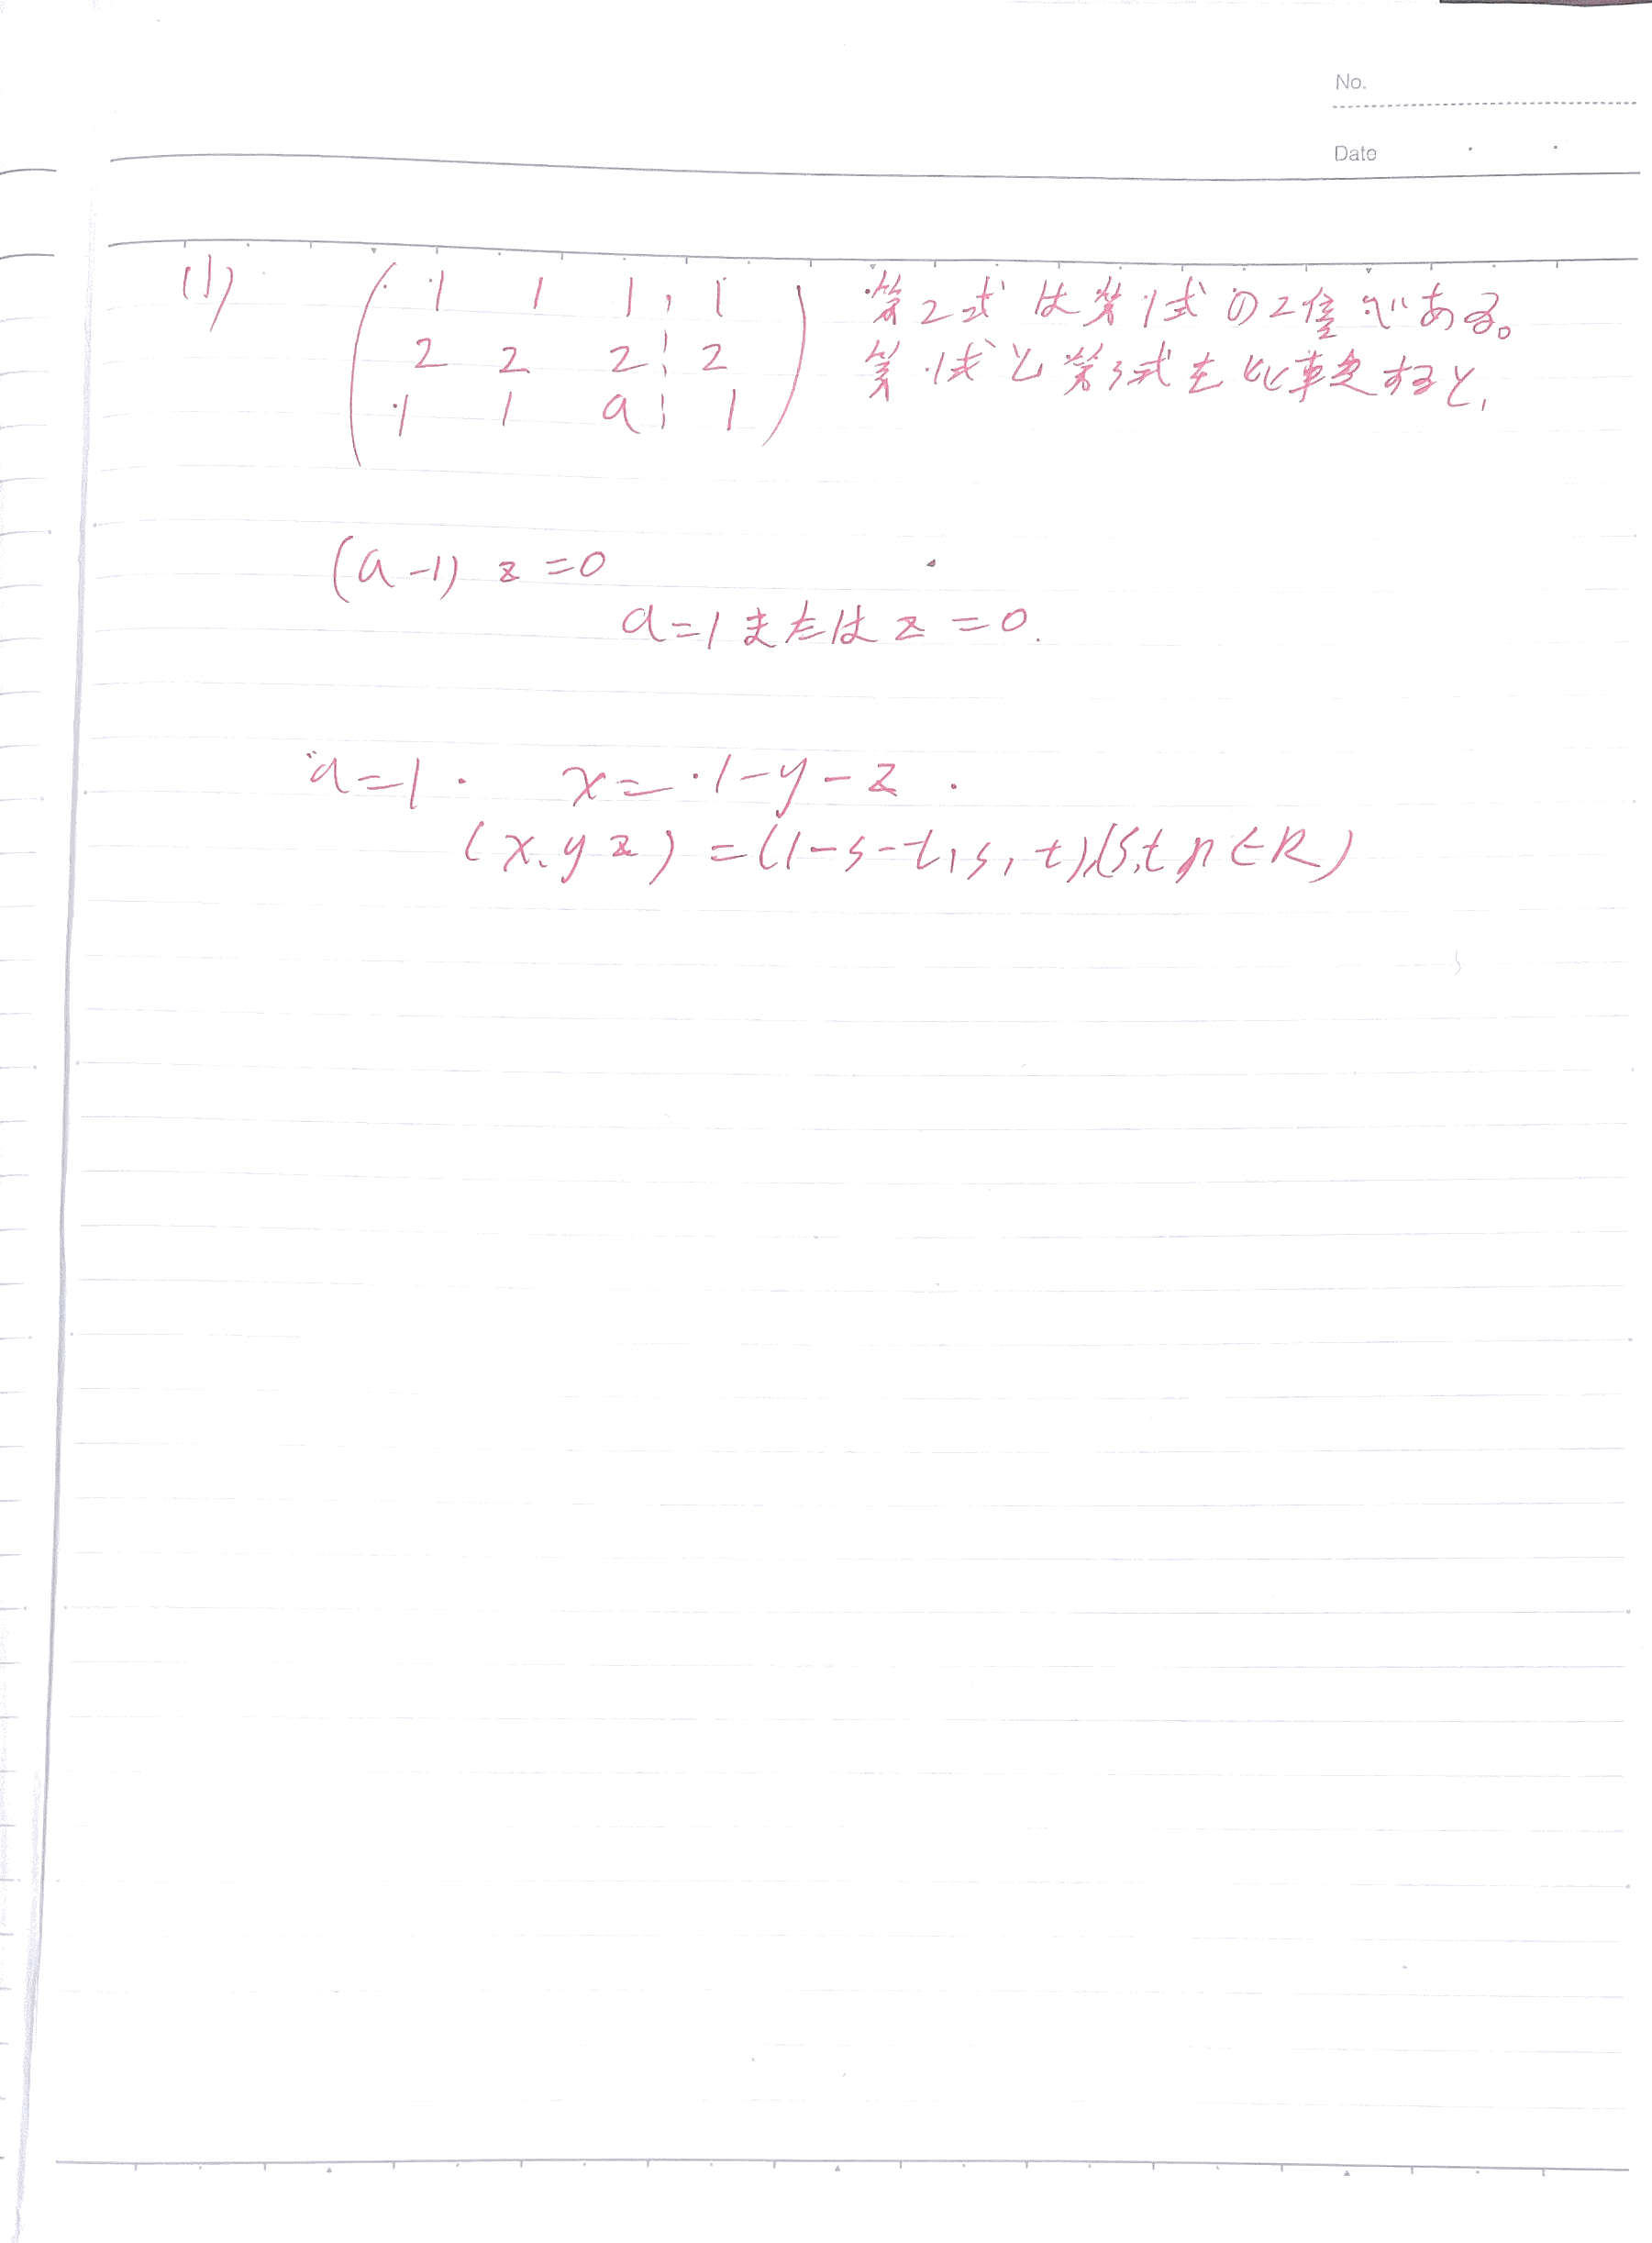 No.
Date
(1) ( 1 1 1 ¦ 1 ) 第2式は第1式の2倍である。
2 2 2 ¦ 2 第1式と第3式を比較すると,
1 1 a ¦ 1
(a-1) z =0
a=1 または z =0.
a=1. x=1-y-z.
(x, y z) =(1-s-t, s, t),(s,t ∈R)